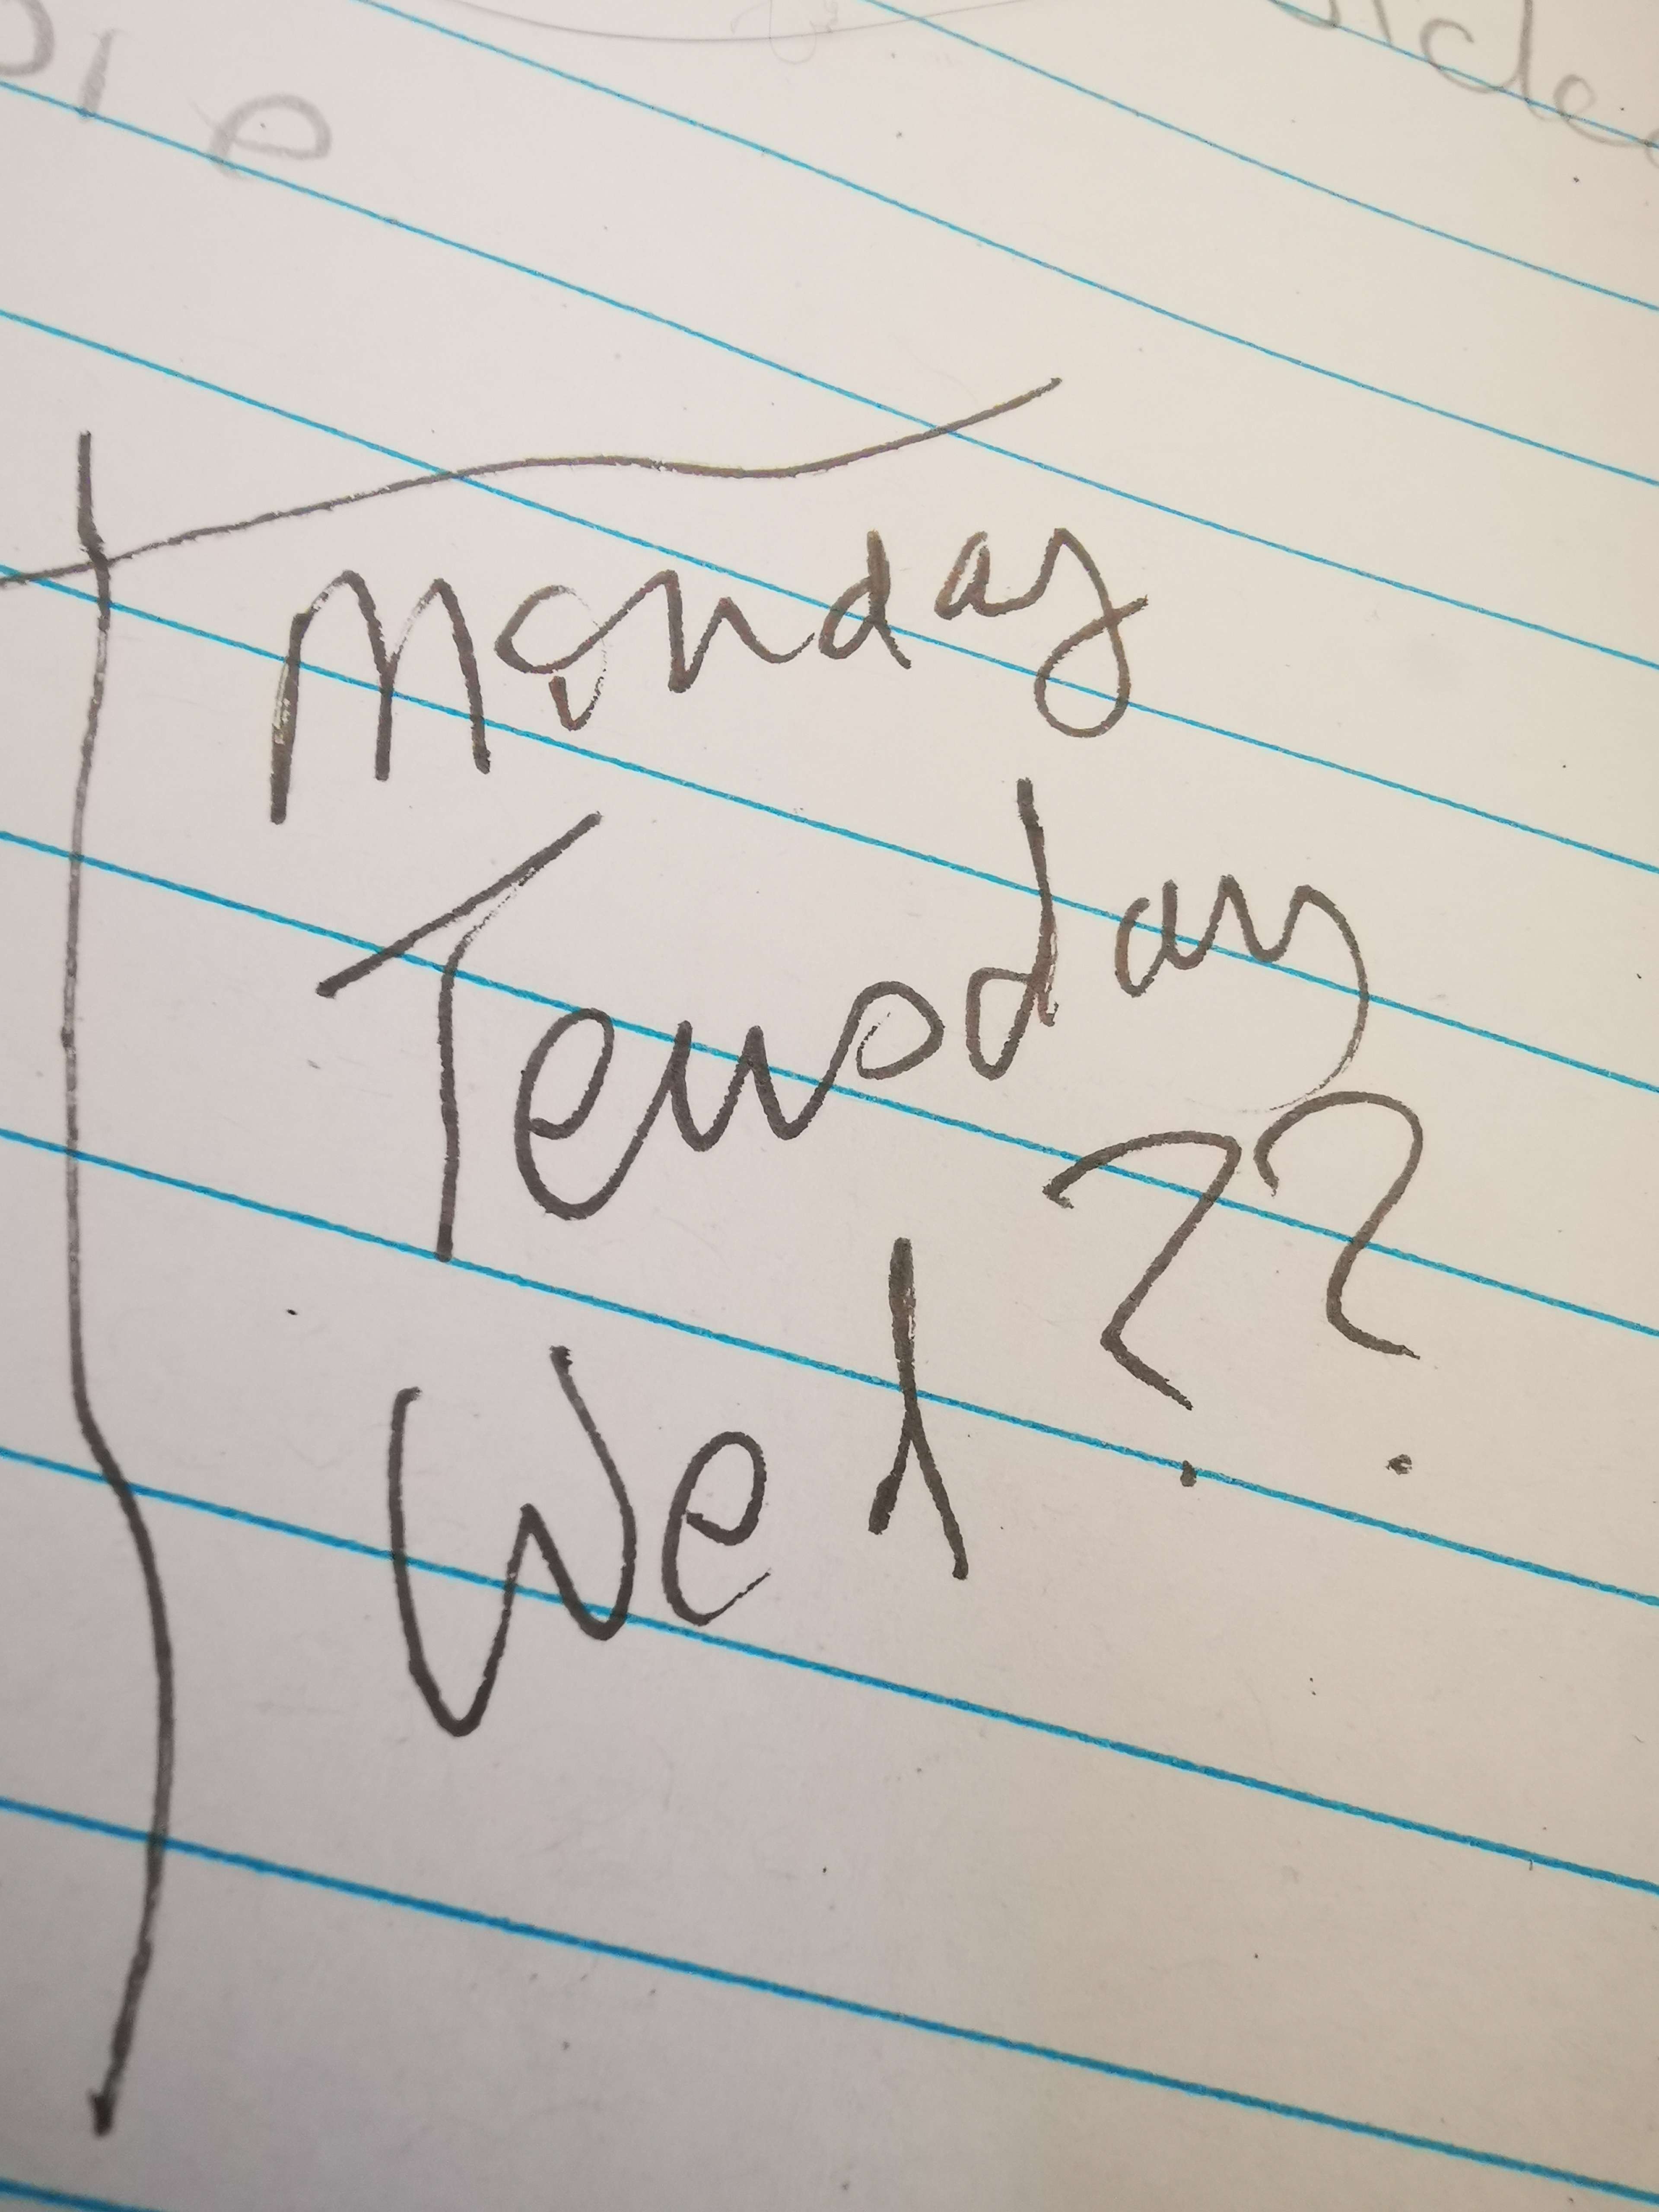 Monday
Teusday
We
??